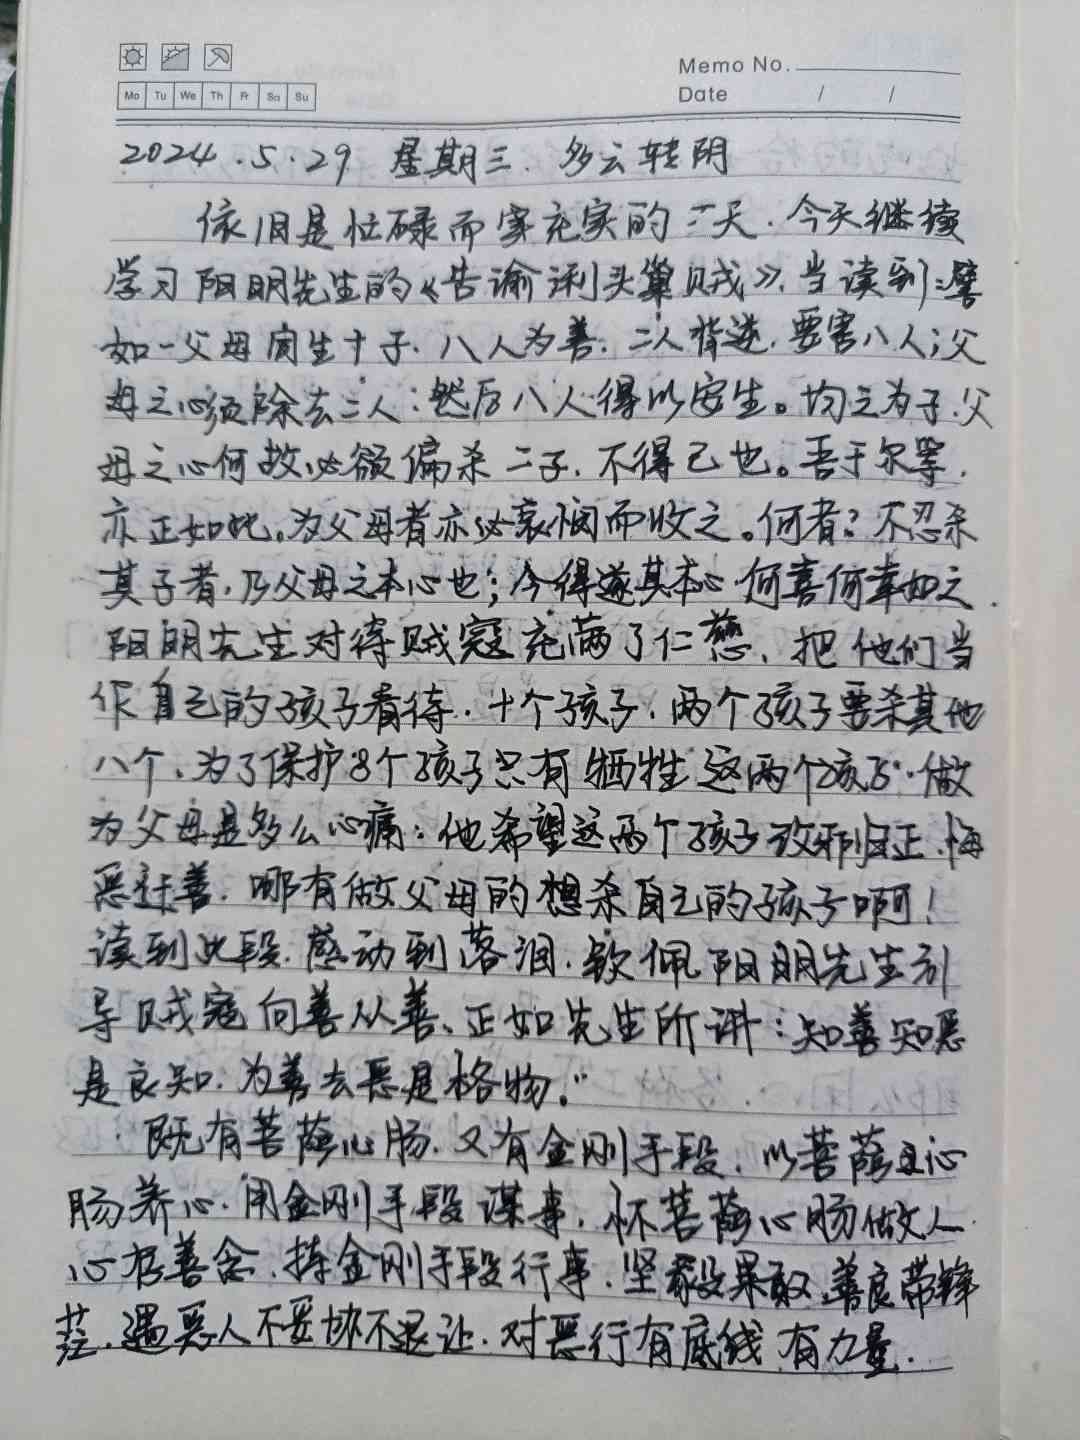 Memo No.
Mo Tu We Th Fr Sa Su
Date / /
2024.5.29 星期三. 多云转阴
依旧是忙碌而充实的一天.今天继续
学习阳明先生的《告谕浰头巢贼》,当读到:譬
如一父母同生十子.八人为善.二人背逆,要害八人;父
母之心须除去二人:然后八人得以安生。均之为子.父
母之心何故必欲偏杀二子,不得已也。吾于尔等,
亦正如此。为父母者亦必哀悯而收之。何者?不忍杀
其子者,乃父母之本心也;今得遂其本心.何喜何幸如之.
阳明先生对待贼寇充满了仁慈,把他们当
作自己的孩子看待.十个孩子.两个孩子要杀其他
八个.为了保护8个孩子只有牺牲这两个孩子.做
为父母是多么心痛:他希望这两个孩子改邪归正.悔
恶迁善.哪有做父母的想杀自己的孩子啊!
读到此段.感动到落泪.钦佩阳明先生引
导贼寇向善从善、正如先生所讲:知善知恶
是良知.为善去恶是格物。"
既有菩萨心肠.又有金刚手段.以菩萨心
肠养心.用金刚手段谋事.怀菩萨心肠做人.
心存善念.持金刚手段行事.坚毅果敢.善良带锋
芒.遇恶人不妥协不退让.对恶行有底线有力量.